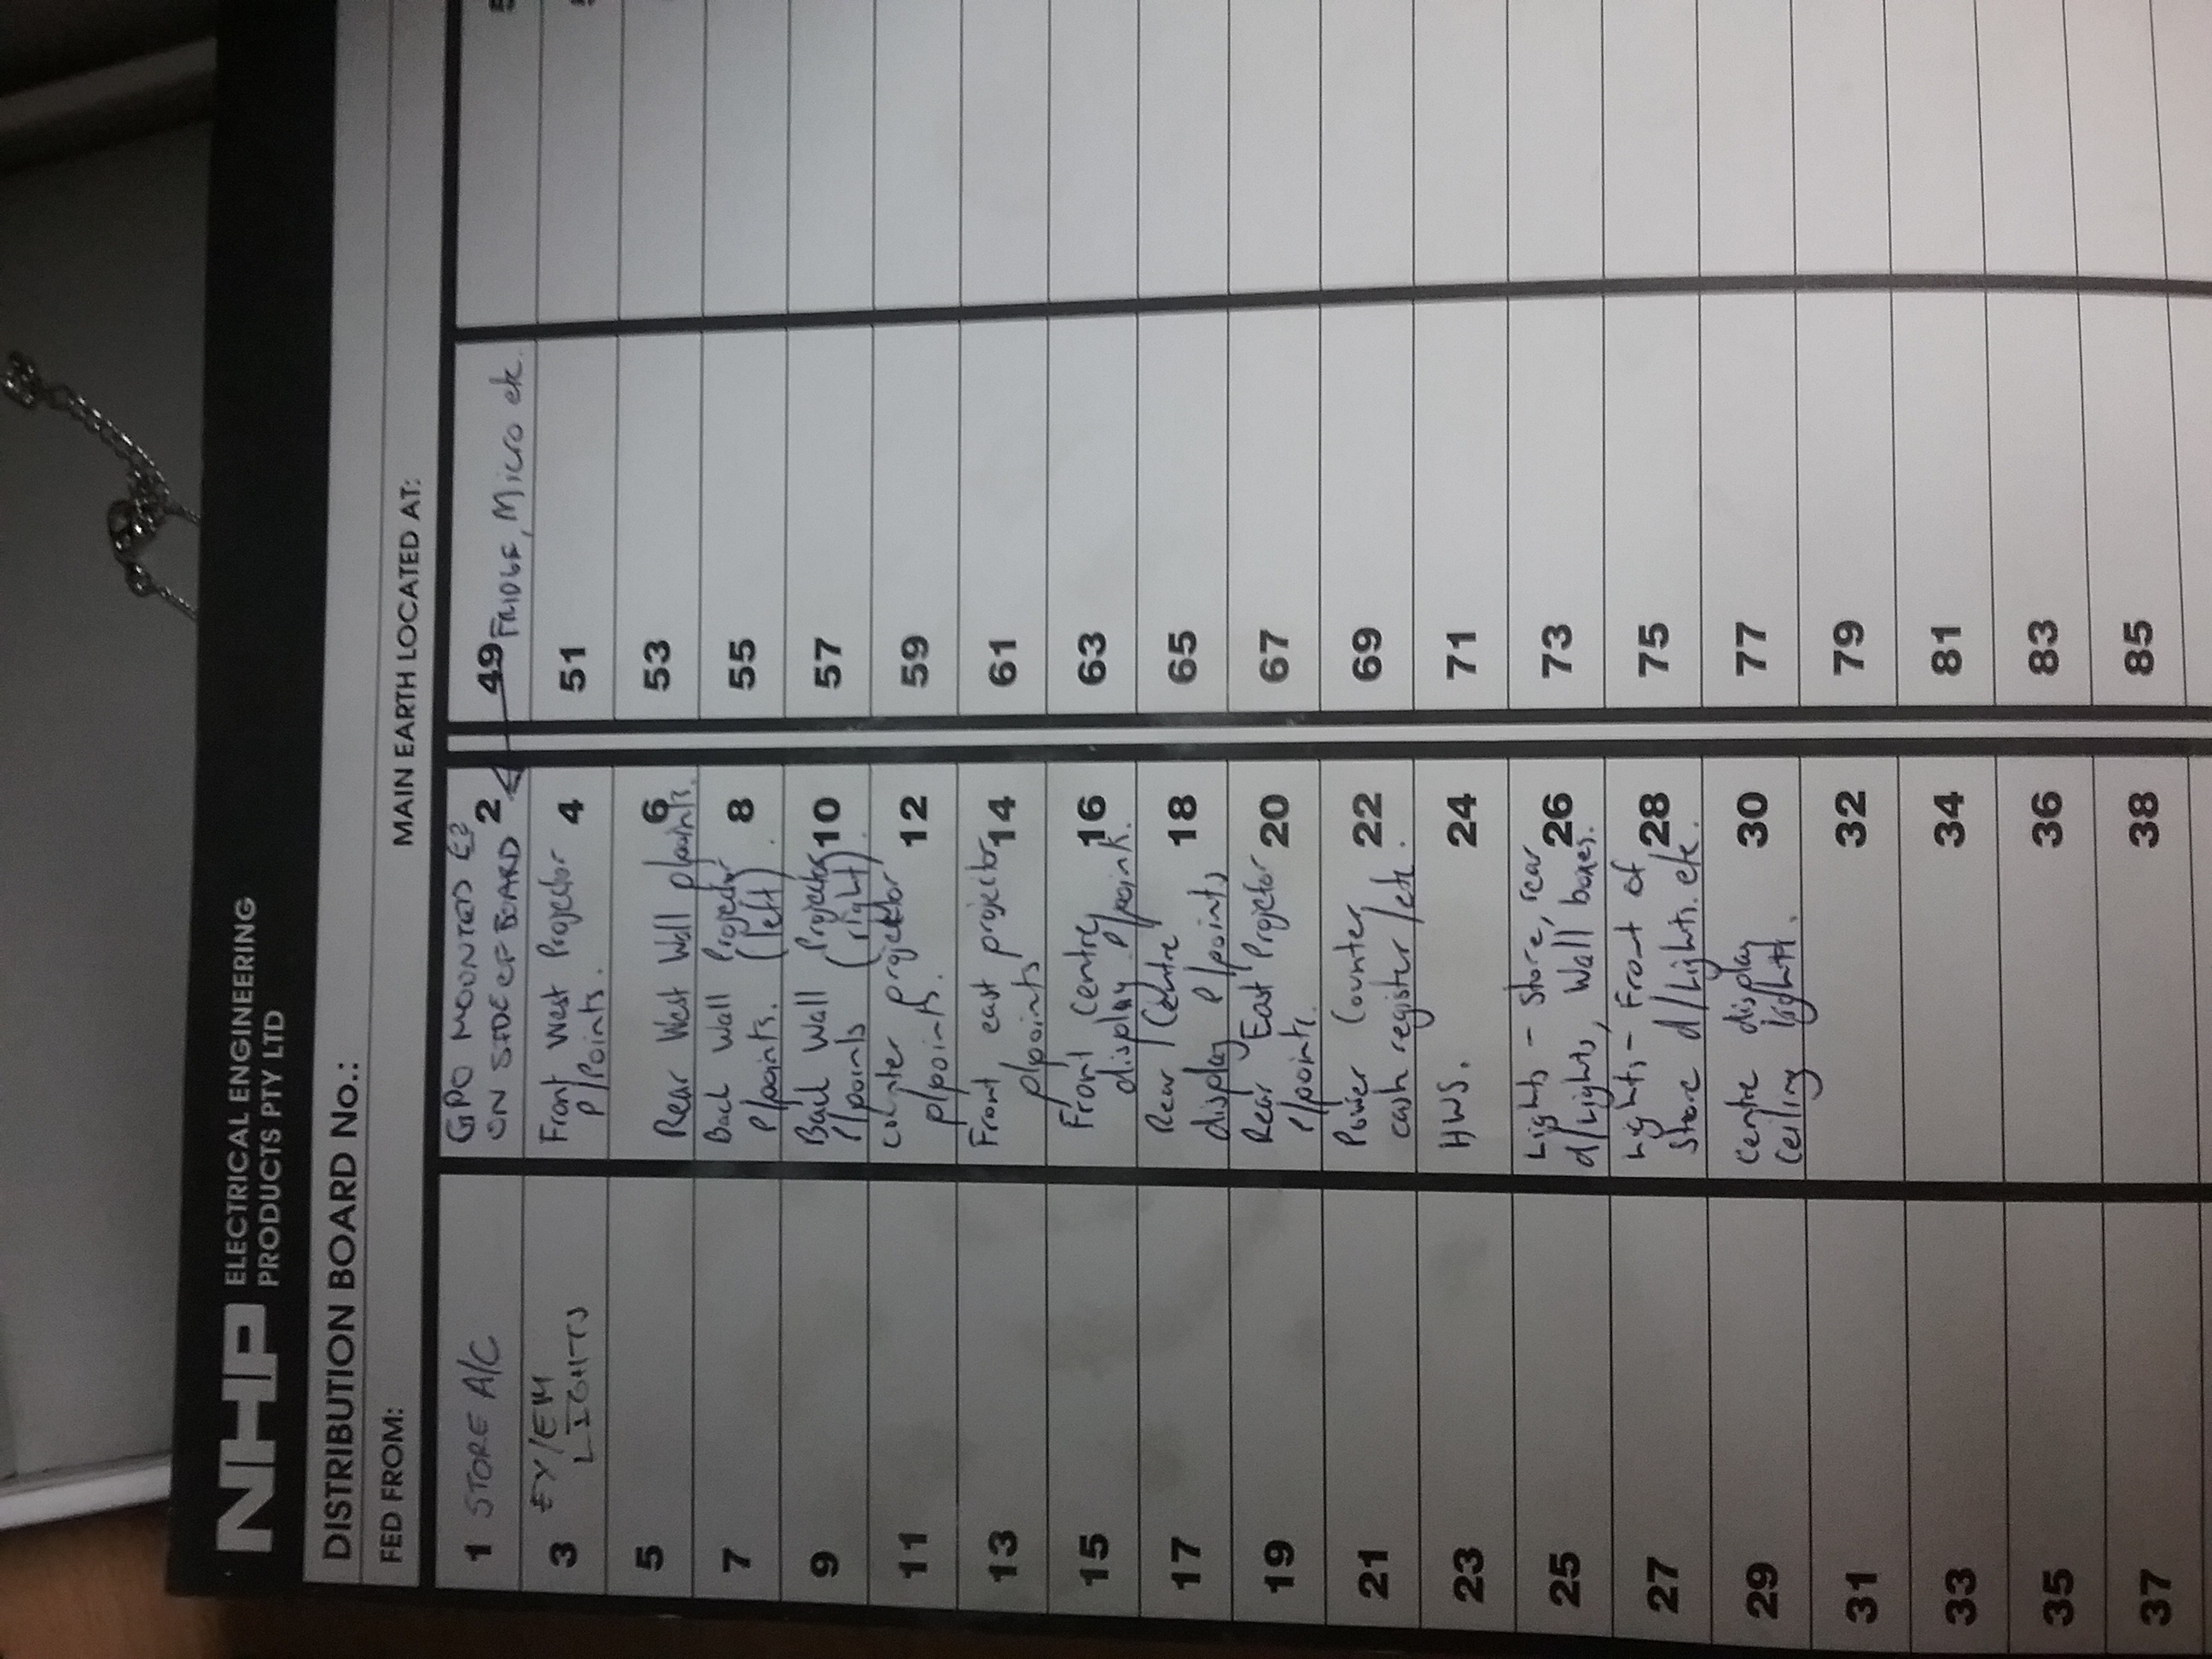 NHP ELECTRICAL ENGINEERING
PRODUCTS PTY LTD
DISTRIBUTION BOARD No.:
FED FROM:
MAIN EARTH LOCATED AT:
1 STORE A/C
GPO MOUNTED
ON SIDE OF BOARD
2
49 FRIDGE, Micro etc.
3 EX/EM
LIGHTS
Front West Projector
P/Points.
4
51
5
Rear West Wall p/points.
6
53
7
Back Wall Projector
P/points. (left).
8
55
9
Back Wall Projector
P/points (right).
10
57
11
counter projector
p/points.
12
59
13
Front east projector
p/points
14
61
15
Front Centre
display P/point.
16
63
17
Rear Centre
display P/points
18
65
19
Rear East Projector
P/points.
20
67
21
Power Counter
cash register/etc.
22
69
23
HWS.
24
71
25
Lights - Store, rear
d/lights, Wall boxes.
26
73
27
Lights - Front of
Store d/lights. etc.
28
75
29
Centre display
Ceiling lights.
30
77
31
32
79
33
34
81
35
36
83
37
38
85